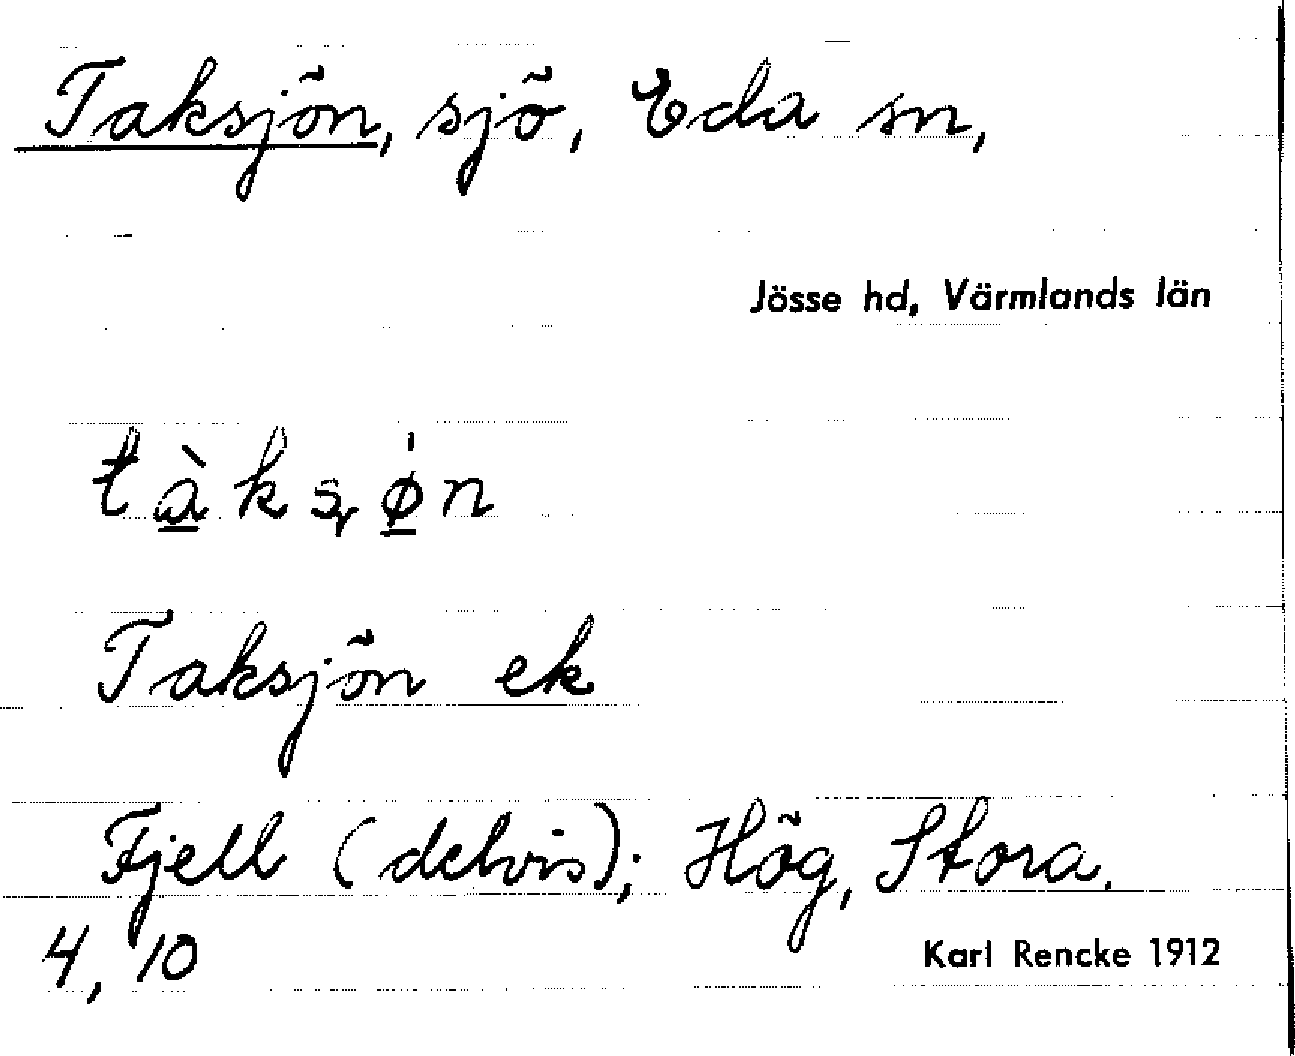 Taksjön, sjö, Eda sn,
Jösse hd, Värmlands län
tàksrø̍n
Taksjön ek
Fjell (delvis); Hög, Stora.
4, 10
Karl Rencke 1912